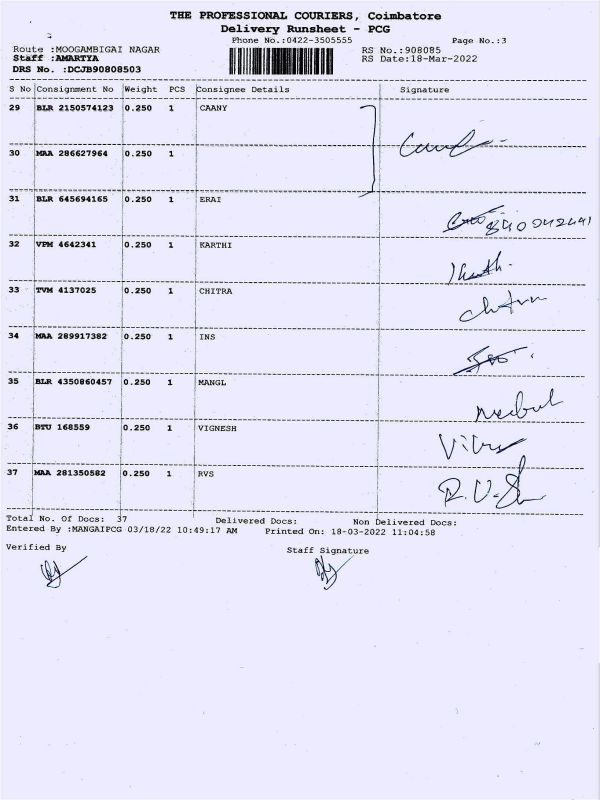 THE PROFESSIONAL COURIERS, Coimbatore
Delivery Runsheet - PCG
Phone No.:0422-3505555 Page No.:3
Route :MOOGAMBIGAI NAGAR RS No.:908085
Staff :AMARTYA RS Date:18-Mar-2022
DRS No. :DCJB90808503
S No Consignment No Weight PCS Consignee Details Signature
29 BLR 2150574123 0.250 1 CAANY
30 MAA 286627964 0.250 1
31 BLR 645694165 0.250 1 ERAI
32 VPM 4642341 0.250 1 KARTHI
33 TVM 4137025 0.250 1 CHITRA
chitra
34 MAA 289917382 0.250 1 INS
35 BLR 4350860457 0.250 1 MANGL
36 BTU 168559 0.250 1 VIGNESH
37 MAA 281350582 0.250 1 RVS
Total No. Of Docs: 37 Delivered Docs: Non Delivered Docs:
Entered By :MANGAIPCG 03/18/22 10:49:17 AM Printed On: 18-03-2022 11:04:58
Verified By Staff Signature